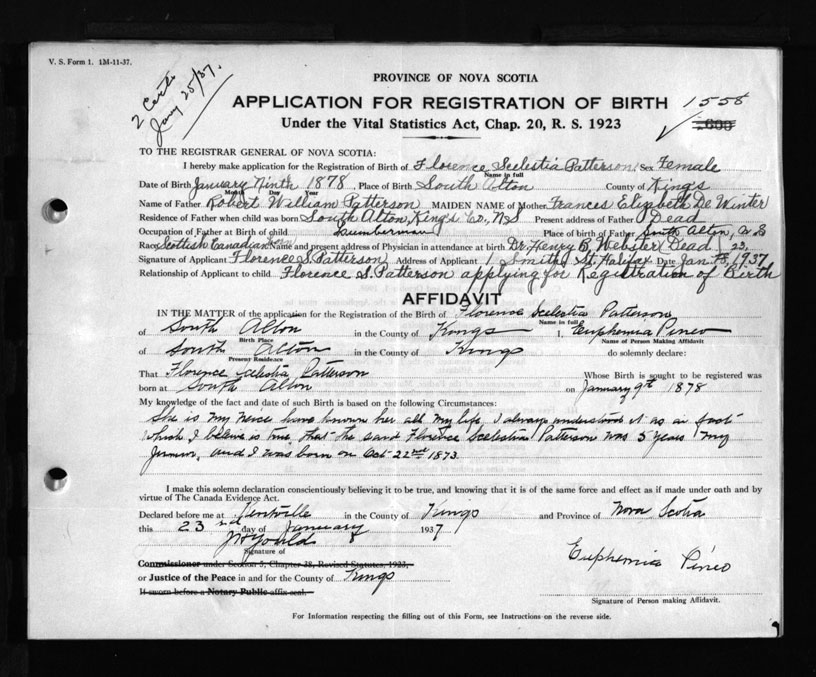 V. S. Form 1. 1M-11-37.
2 Certs
Jany 25/37.
PROVINCE OF NOVA SCOTIA
APPLICATION FOR REGISTRATION OF BIRTH 1558
Under the Vital Statistics Act, Chap. 20, R. S. 1923
TO THE REGISTRAR GENERAL OF NOVA SCOTIA:
I hereby make application for the Registration of Birth of Florence Scelestia Patterson Sex Female
Name in full
Date of Birth January Ninth 1878, Place of Birth South Alton County of King's
Month Day Year
Name of Father Robert William Patterson MAIDEN NAME of Mother Frances Elizabeth De Winter
Residence of Father when child was born South Alton, King's Co., N.S Present address of Father Dead
Occupation of Father at Birth of child Lumberman Place of birth of Father South Alton, N.S
Race Scottish Canadian Name and present address of Physician in attendance at birth Dr. Henry B. Webster (Dead)
Signature of Applicant Florence S. Patterson Address of Applicant 1 Smith St. Halifax Date Jan. 23, 1937
Relationship of Applicant to child Florence S. Patterson applying for Registration of Birth
AFFIDAVIT
IN THE MATTER of the application for the Registration of the Birth of Florence Scelestia Patterson
Name in full
of South Alton in the County of Kings I, Euphemia Pineo
Birth Place Name of Person Making Affidavit
of South Alton in the County of Kings do solemnly declare:
Present Residence
That Florence Scelestia Patterson Whose Birth is sought to be registered was
born at South Alton on January 9th 1878
My knowledge of the fact and date of such Birth is based on the following Circumstances:
She is my niece have known her all my life, I always understood it as a fact
which I believe is true, that the said Florence Scelestia Patterson was 5 years my
junior, and I was born on Oct 22nd 1873
I make this solemn declaration conscientiously believing it to be true, and knowing that it is of the same force and effect as if made under oath and by
virtue of The Canada Evidence Act.
Declared before me at Kentville in the County of Kings and Province of Nova Scotia
this 23rd day of January 1937
Signature of
Commissioner under Section 5, Chapter 38, Revised Statutes, 1923,
or Justice of the Peace in and for the County of Kings
If sworn before a Notary Public affix seal.
Euphemia Pineo
Signature of Person making Affidavit.
For Information respecting the filling out of this Form, see Instructions on the reverse side.